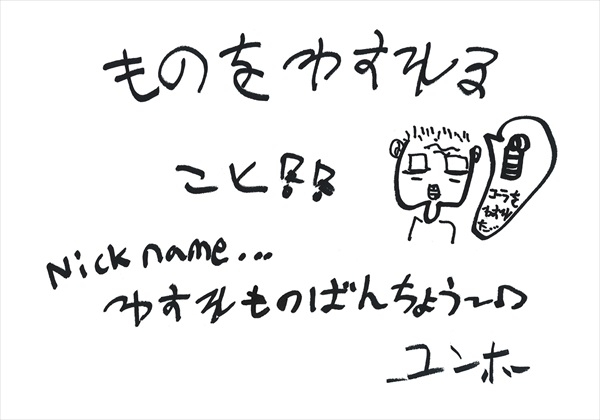 ものをわすれる
こと!!
コーラを
わすれ
た...
Nick name...
わすれものばんちょう〜♪
ユンホ